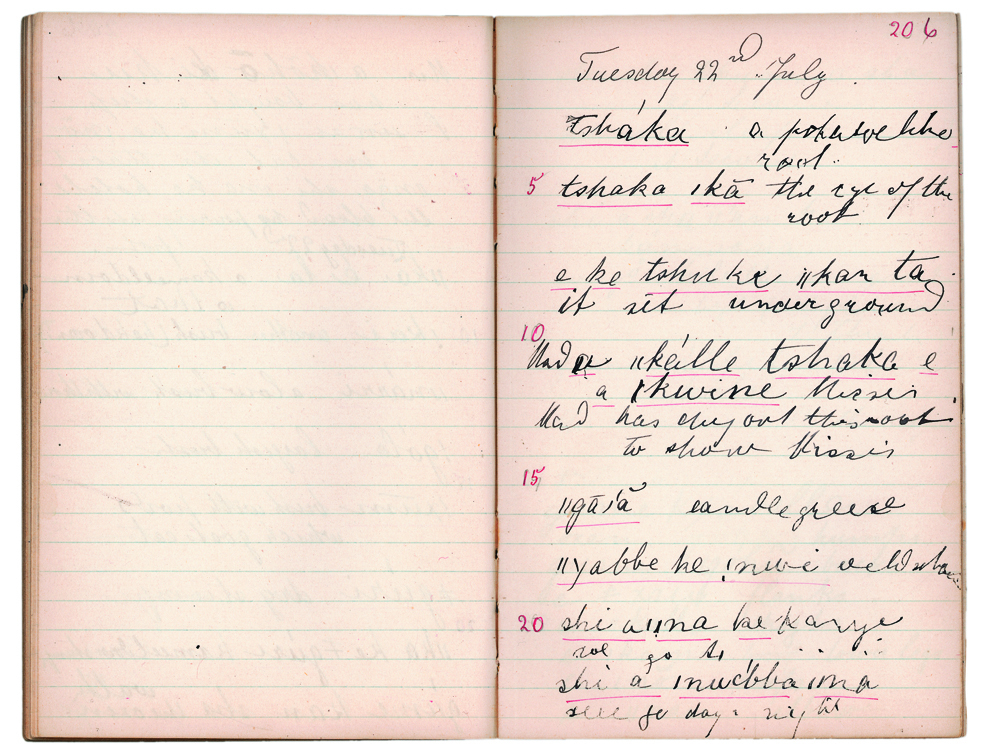 206
Tuesday 22nd July
tsháka a potatoe like
root
5 tshaka ıkā the eye of the
root
e ke tshu ke ǁkan ta
it sit underground
10
a ǁkálle tshaka e
a kwine Missis
has dug out this root
to show Missis
15
candle grease
ǁyabbe ke
20 shi a ǁna ke Kanye
we go to
shi a ına
see go day night